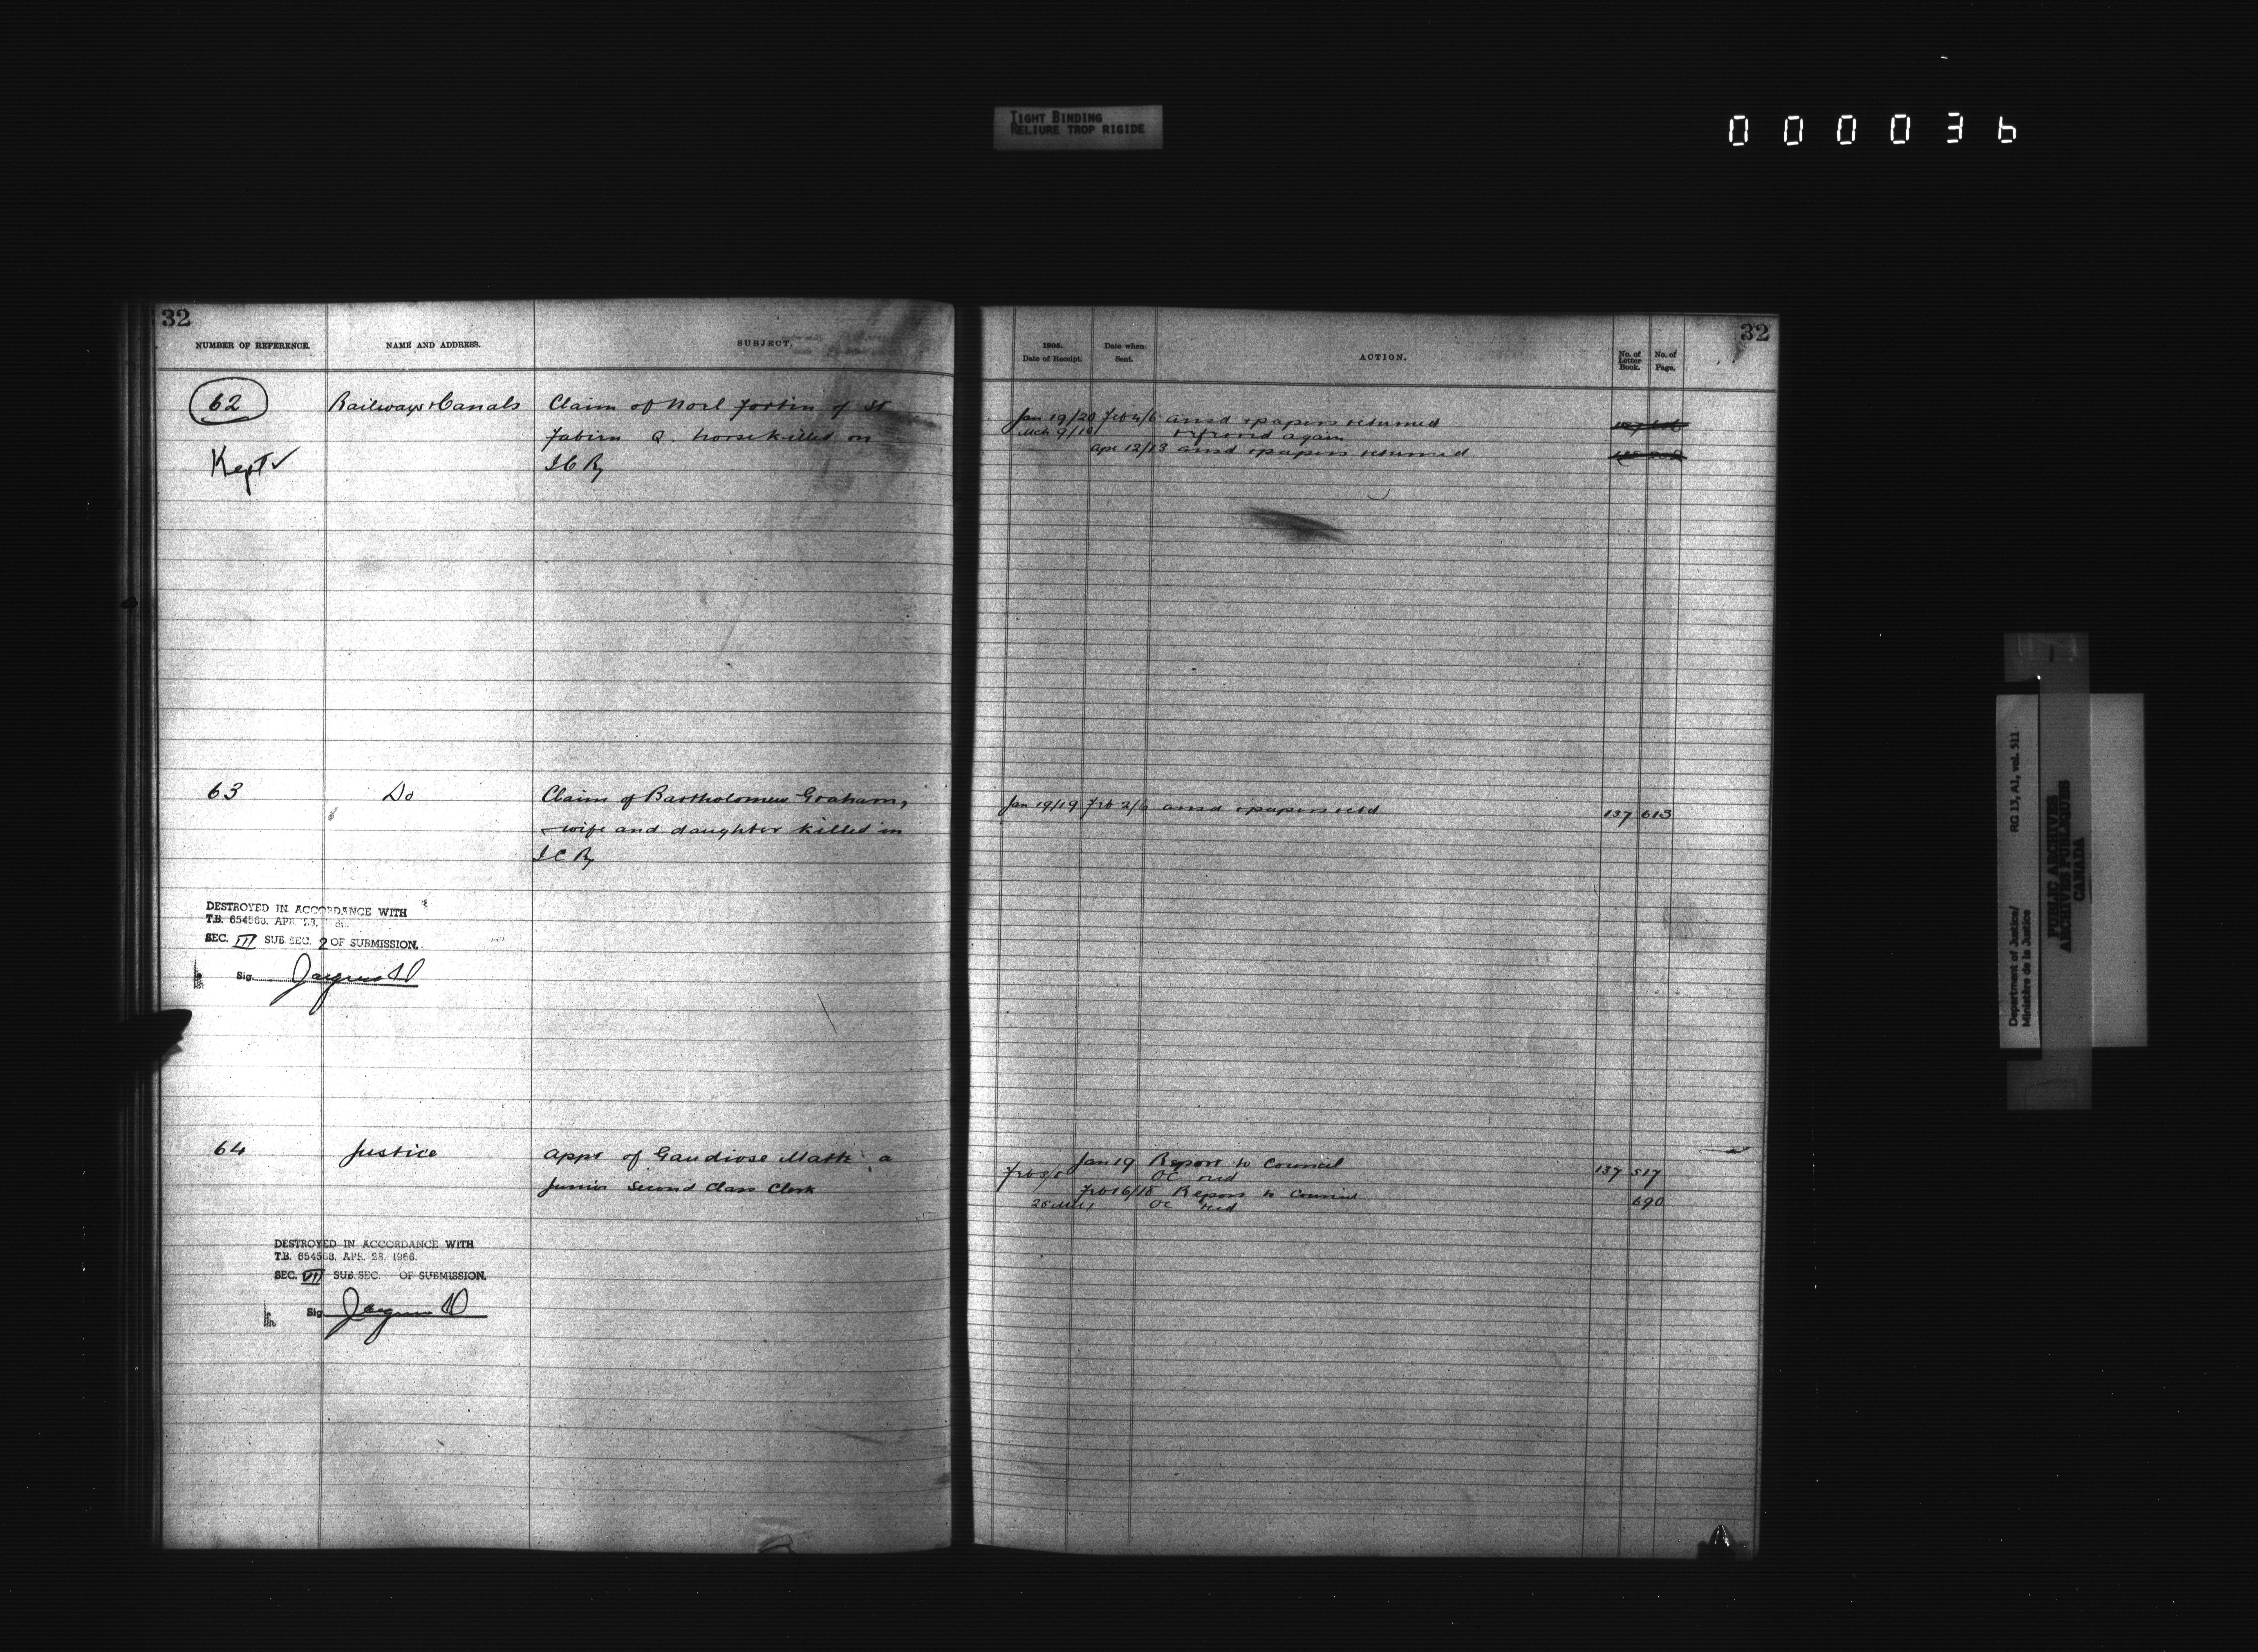 TIGHT BINDING
RELIURE TROP RIGIDE
000036
32
NUMBER OF REFERENCE.
NAME AND ADDRESS.
SUBJECT.
62
Kept ✓
Railways & Canals
Claim of Noel Fortin of St
Fabien Q. horse killed on
I C Ry
63
Do
Claim of Bartholomew Graham,
wife and daughter killed in
I C Ry
DESTROYED IN ACCORDANCE WITH
T.B. 654563, APR. 28,
SEC. III SUB SEC. 2 OF SUBMISSION.
Sig.
64
Justice
Appt of Gaudiose a
Junior Second Class Clerk
DESTROYED IN ACCORDANCE WITH
T.B. 654563, APR. 28, 1966.
SEC. VII SUB. SEC. OF SUBMISSION.
Sig
32
1905.
Date of Receipt.
Date when
Sent.
ACTION.
No. of
Letter
Book.
No. of
Page.
Jan 19/20 Feb 4/6 ansd & papers returned
Mch 9/10 referred again
Apr 12/13 ansd & papers returned
Jan 19/19 Feb 2/6 ansd & papers retd 137 613
Jan 19 Report to Council 137 517
OC recd
Feb 16/18 Report to Council 690
OC recd
Department of Justice/
Ministère de la Justice
RG 13, A1, vol. 511
PUBLIC ARCHIVES
ARCHIVES PUBLIQUES
CANADA